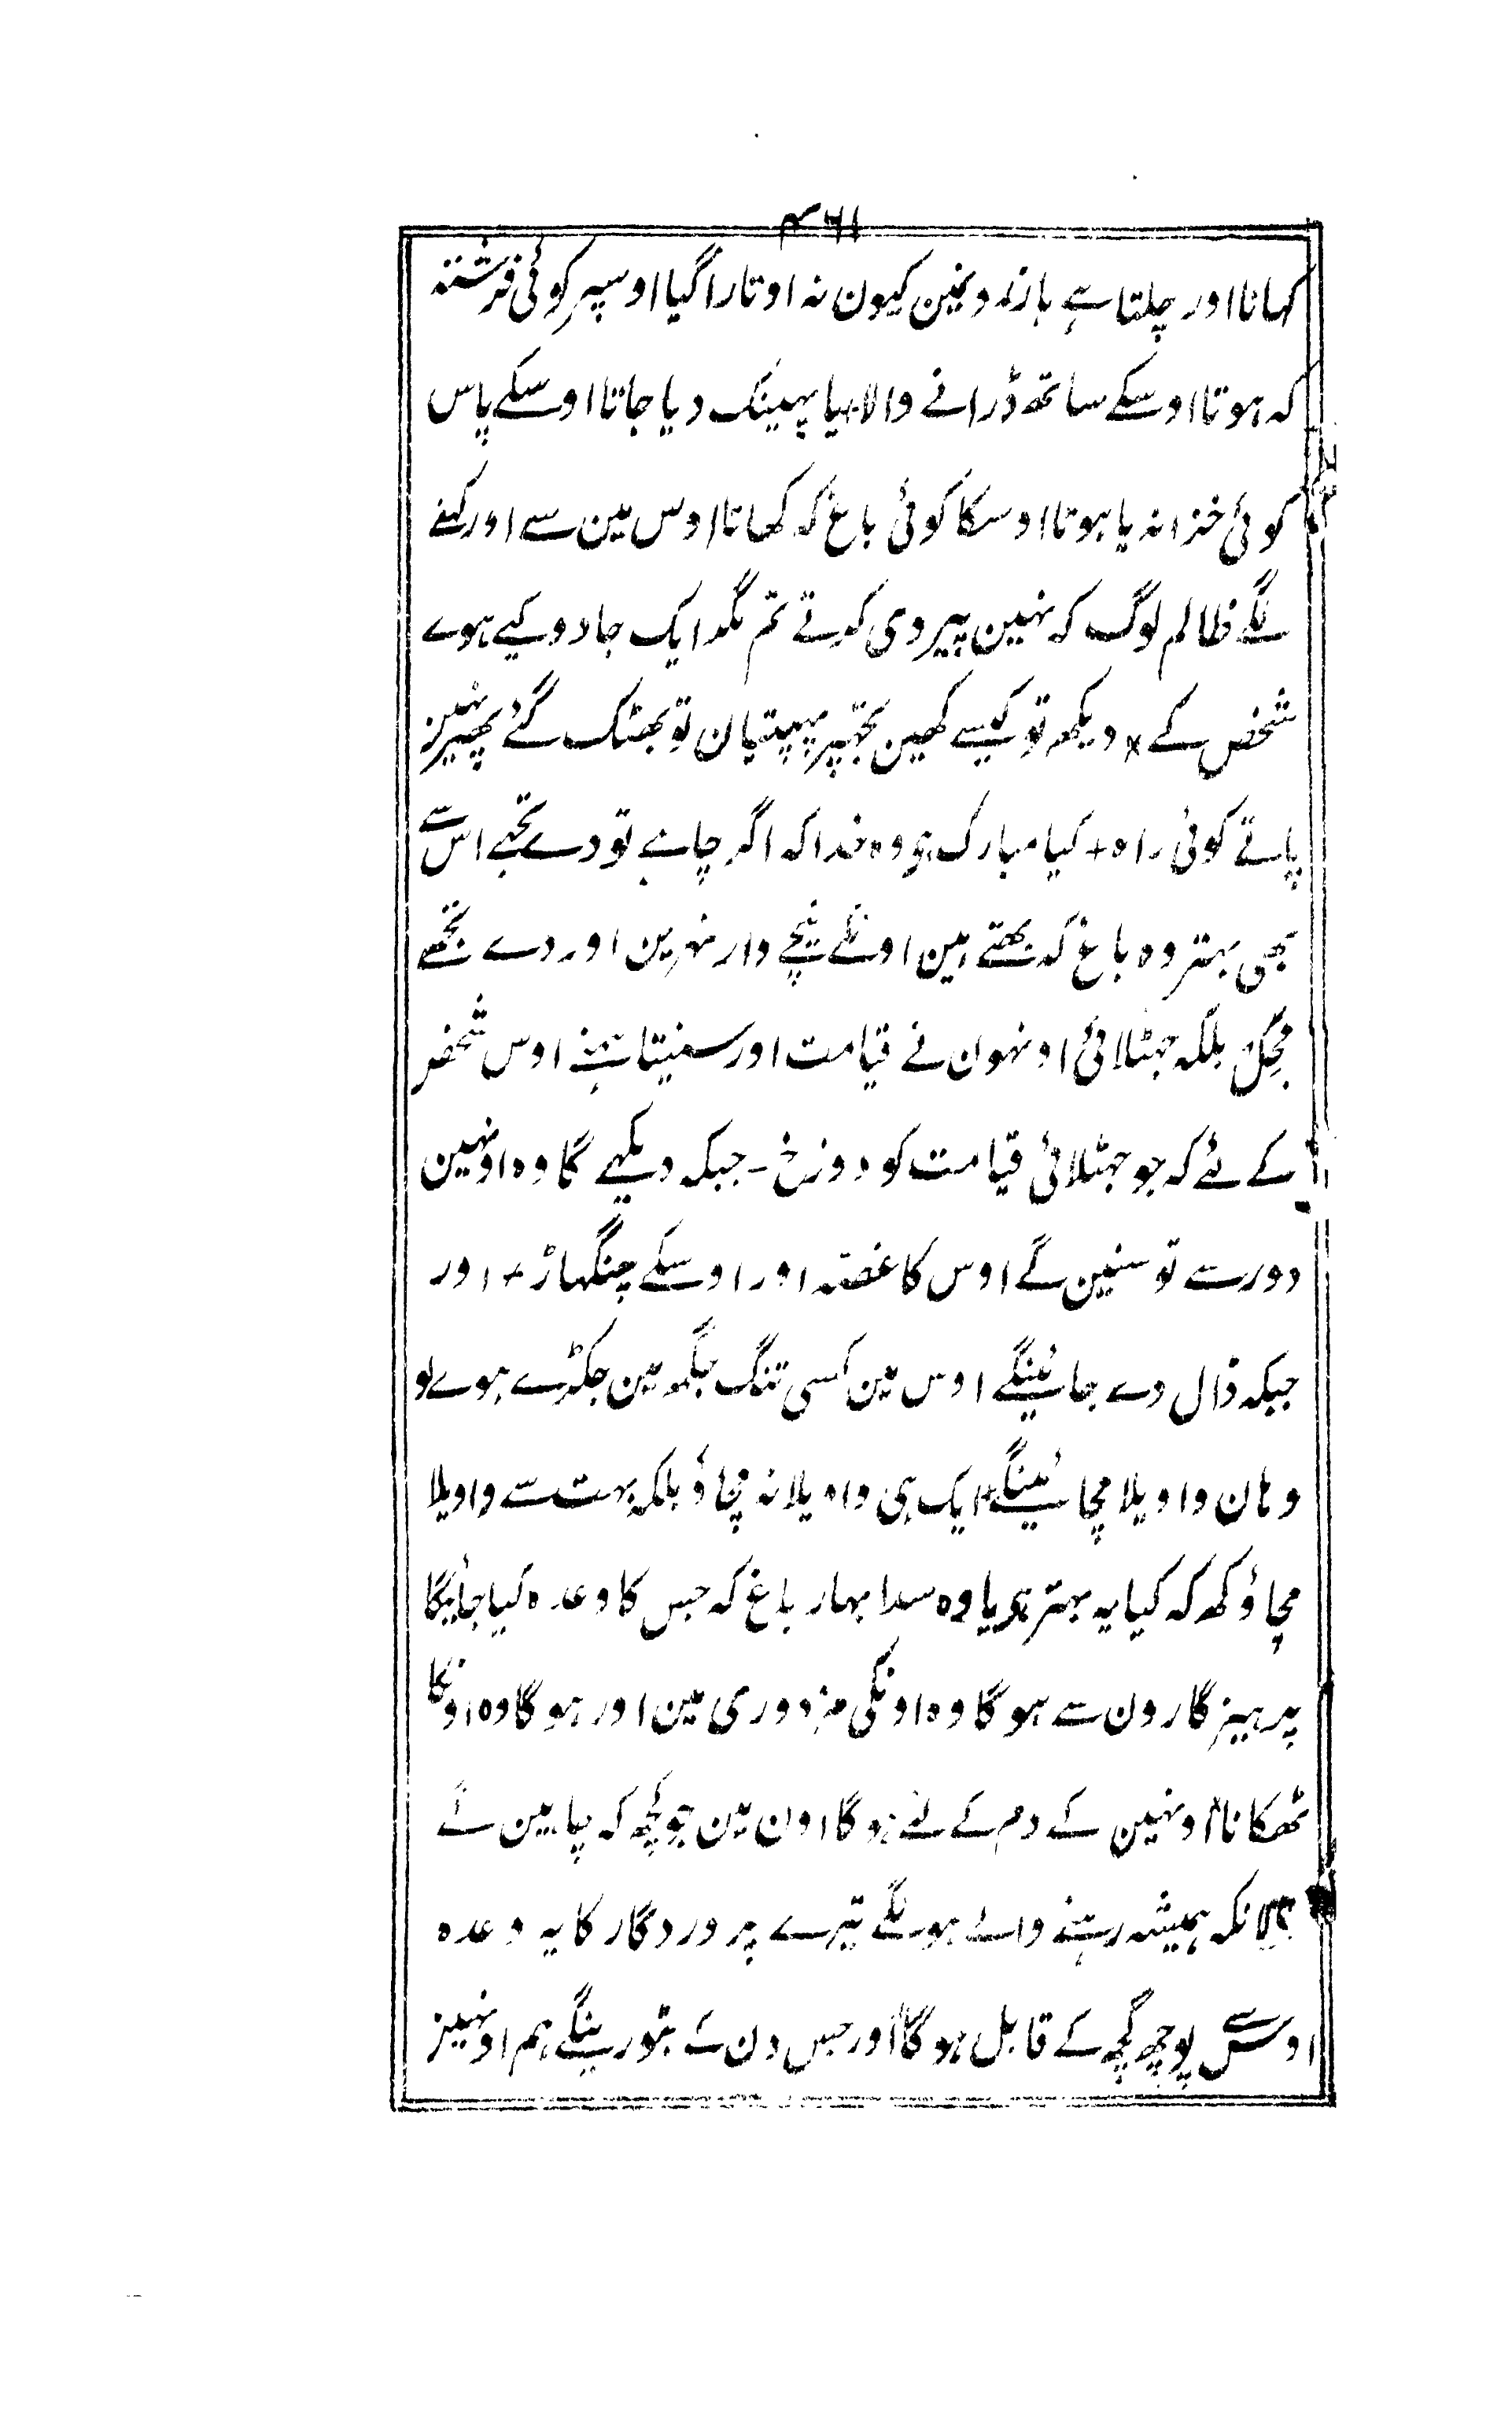 ۴۶۱
کہانا اور چلتا ہے بازارونمین کیون نہ اوتارا گیا اوسپر کوئی فرشتہ
کہ ہوتا اوسکے ساتھ ڈرانے والا یا پہینک دیا جاتا اوسکے پاس
کوئی خزانہ یا ہوتا اوسکا کوئی باغ کہ کھاتا اوس مین سے اور کہنے
لگے ظالم لوگ کہ نہین پیروی کرتے تم مگر ایک جادو کیے ہوے
شخص کے × دیکھ تو کیسے کھین تجہپر پہبتیان تو بھٹک گئے پھر نہین
پاتے کوئی راہ + کیا مبارک ہی وہ خدا کہ اگر چاہے تو دے تجہے اس سے
بھی بہتر وہ باغ کہ بھتے ہین اونکے نیچے وار نہرین اور دے تجھے
محل بلکہ جہٹلائی اونہون نے قیامت اور سنیتا ہمنے اوس شخص
کے لئے کہ جو جہٹلائی قیامت کو دوزخ - جبکہ دیکہے گا وہ اونہین
دور سے تو سنین گے اوس کا غصّہ اور اوسکے چنگہاڑ + اور
جبکہ ڈال دے جائینگے اوس مین کسی تنگ جگہ مین جکڑے ہوے تو
وہان واویلا مچائینگے + ایک ہی واویلا نہ مچاؤ بلکہ بہت سے واویلا
مچاؤ کھ کہ کیا یہ بہتر ہی یا وہ سدا بہار باغ کہ جس کا وعدہ کیا جائیگا
پرہیز گارون سے ہوگا وہ اونکی مزدوری مین اور ہوگا وہ اونکا
ٹھکانا اونہین کے دم کے لئے ہوگا اون مین جو کچھ کہ چاہین گے
حالانکہ ہمیشہ رہنے والے ہونگے تیرے پروردگار کا یہ وعدہ
اوس سے پوچھ گچھ کے قابل ہوگا اور جس دن کہ بتورینگے ہم اونہین